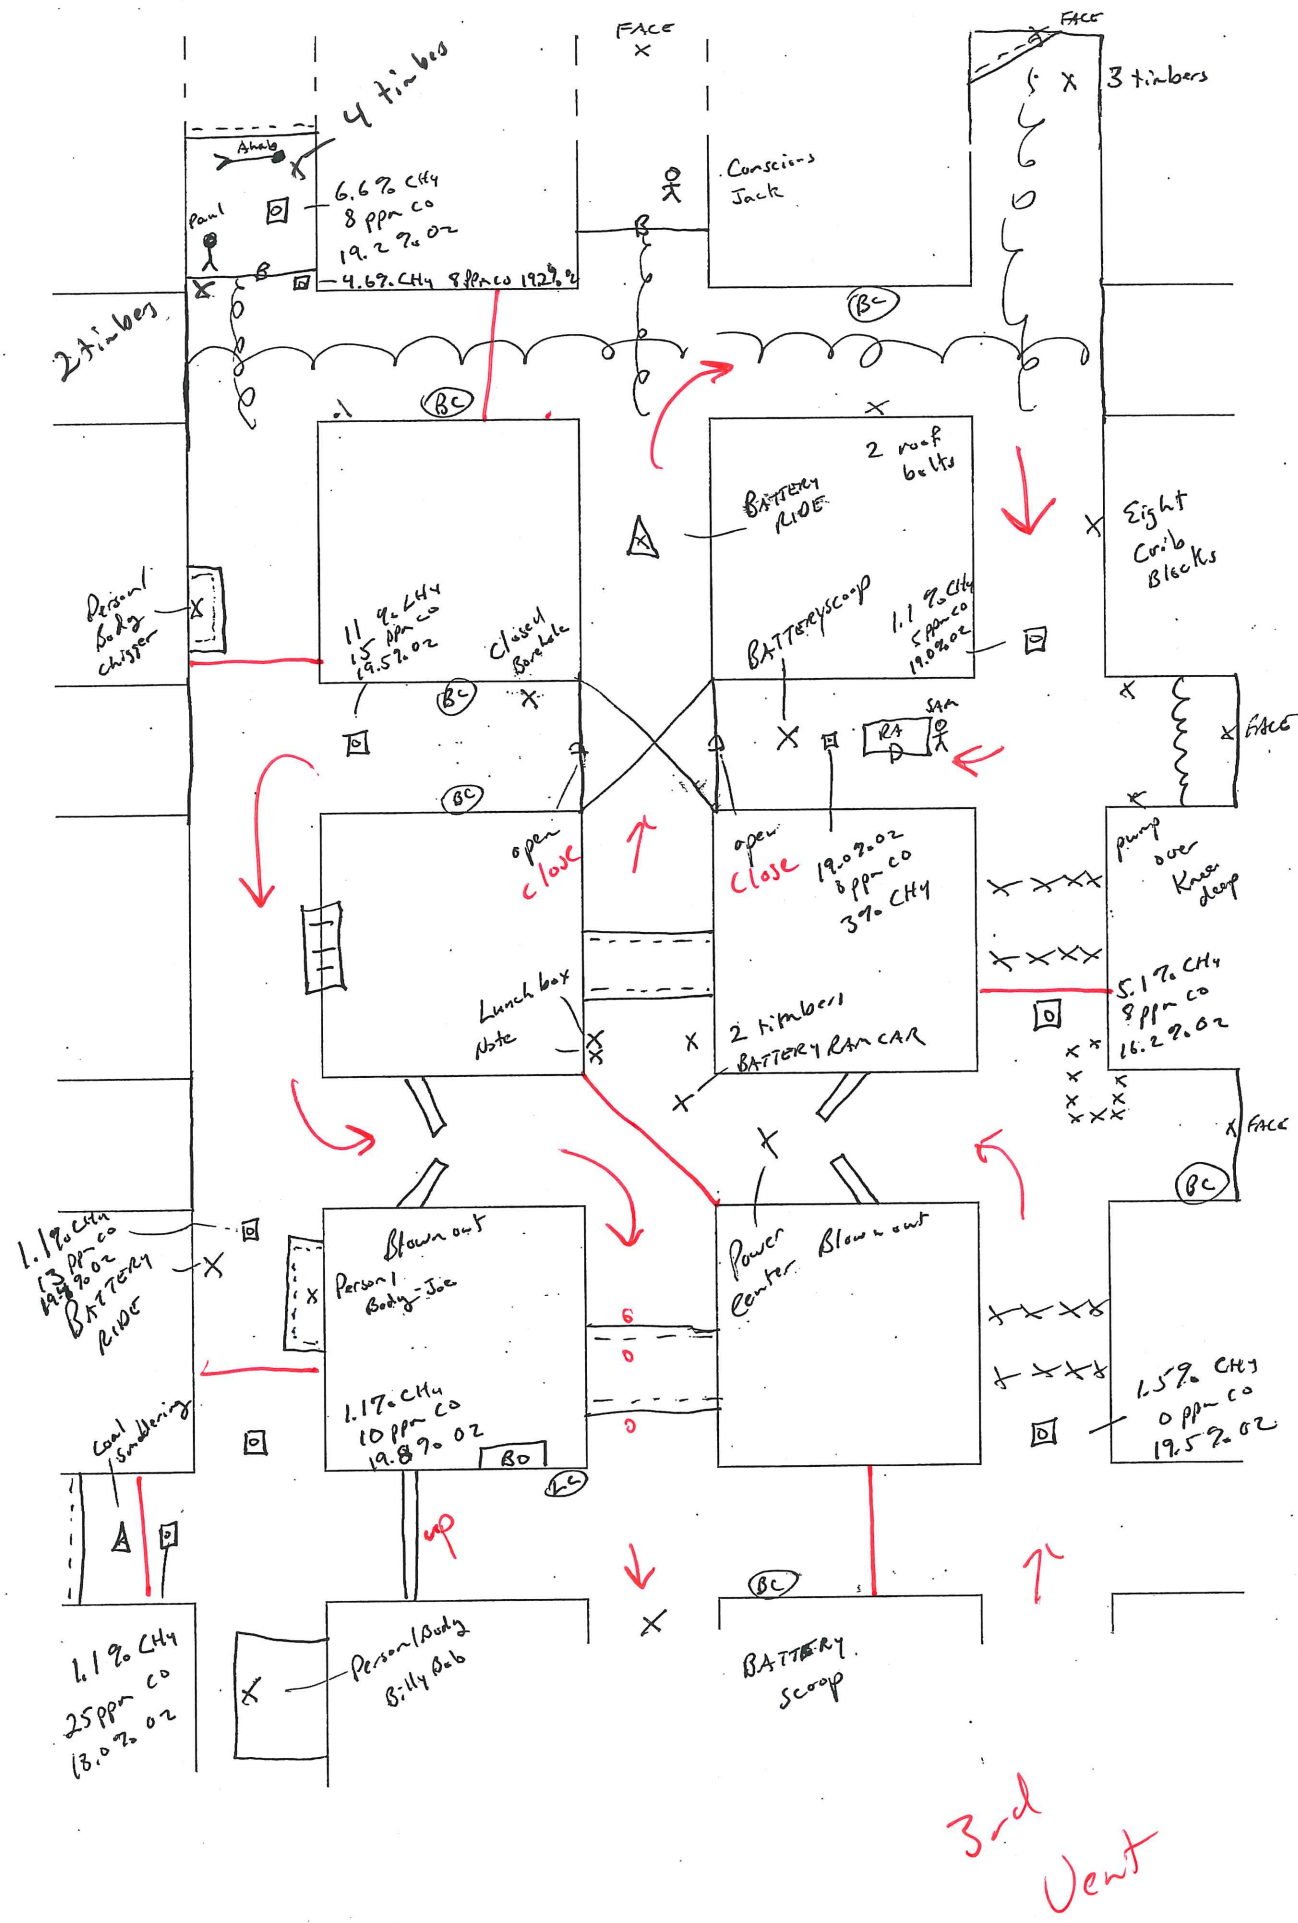 FACE
FACE
4 timbes
3 timbers
Ahab
6.6% CH4
8 ppm CO
19.2 % O2
Paul
Conscious
Jack
B
B
4.6% CH4 8ppm CO 19.2% O2
2 timbes
BC
BC
2 roof
bolts
BATTERY
RIDE
Eight
Crib
Blocks
Personl
Body
11 % CH4
15 ppm CO
19.5% O2
Closed
Borehole
BATTERYscoop
1.1 % CH4
5 ppm CO
19.0% O2
BC
SAM
RA
FACE
BC
open
close
open
close
19.0% O2
8 ppm CO
3% CH4
pump
over
Knee
deep
Lunch box
Note
2 timbers
BATTERY RAM CAR
5.1% CH4
8 ppm CO
16.2 % O2
FACE
BC
1.1% CH4
13 ppm CO
BATTERY
RIDE
Blown out
Personl
Body - Joe
Power
Center
Blown out
6
0
0
1.1% CH4
10 ppm CO
19.8% O2
BO
1.5% CH4
0 ppm CO
19.5% O2
Coal
Smoldering
up
BC
1.1% CH4
25 ppm CO
18.0% O2
Personl Body
Billy Bob
BATTERY
scoop
3rd
Vent